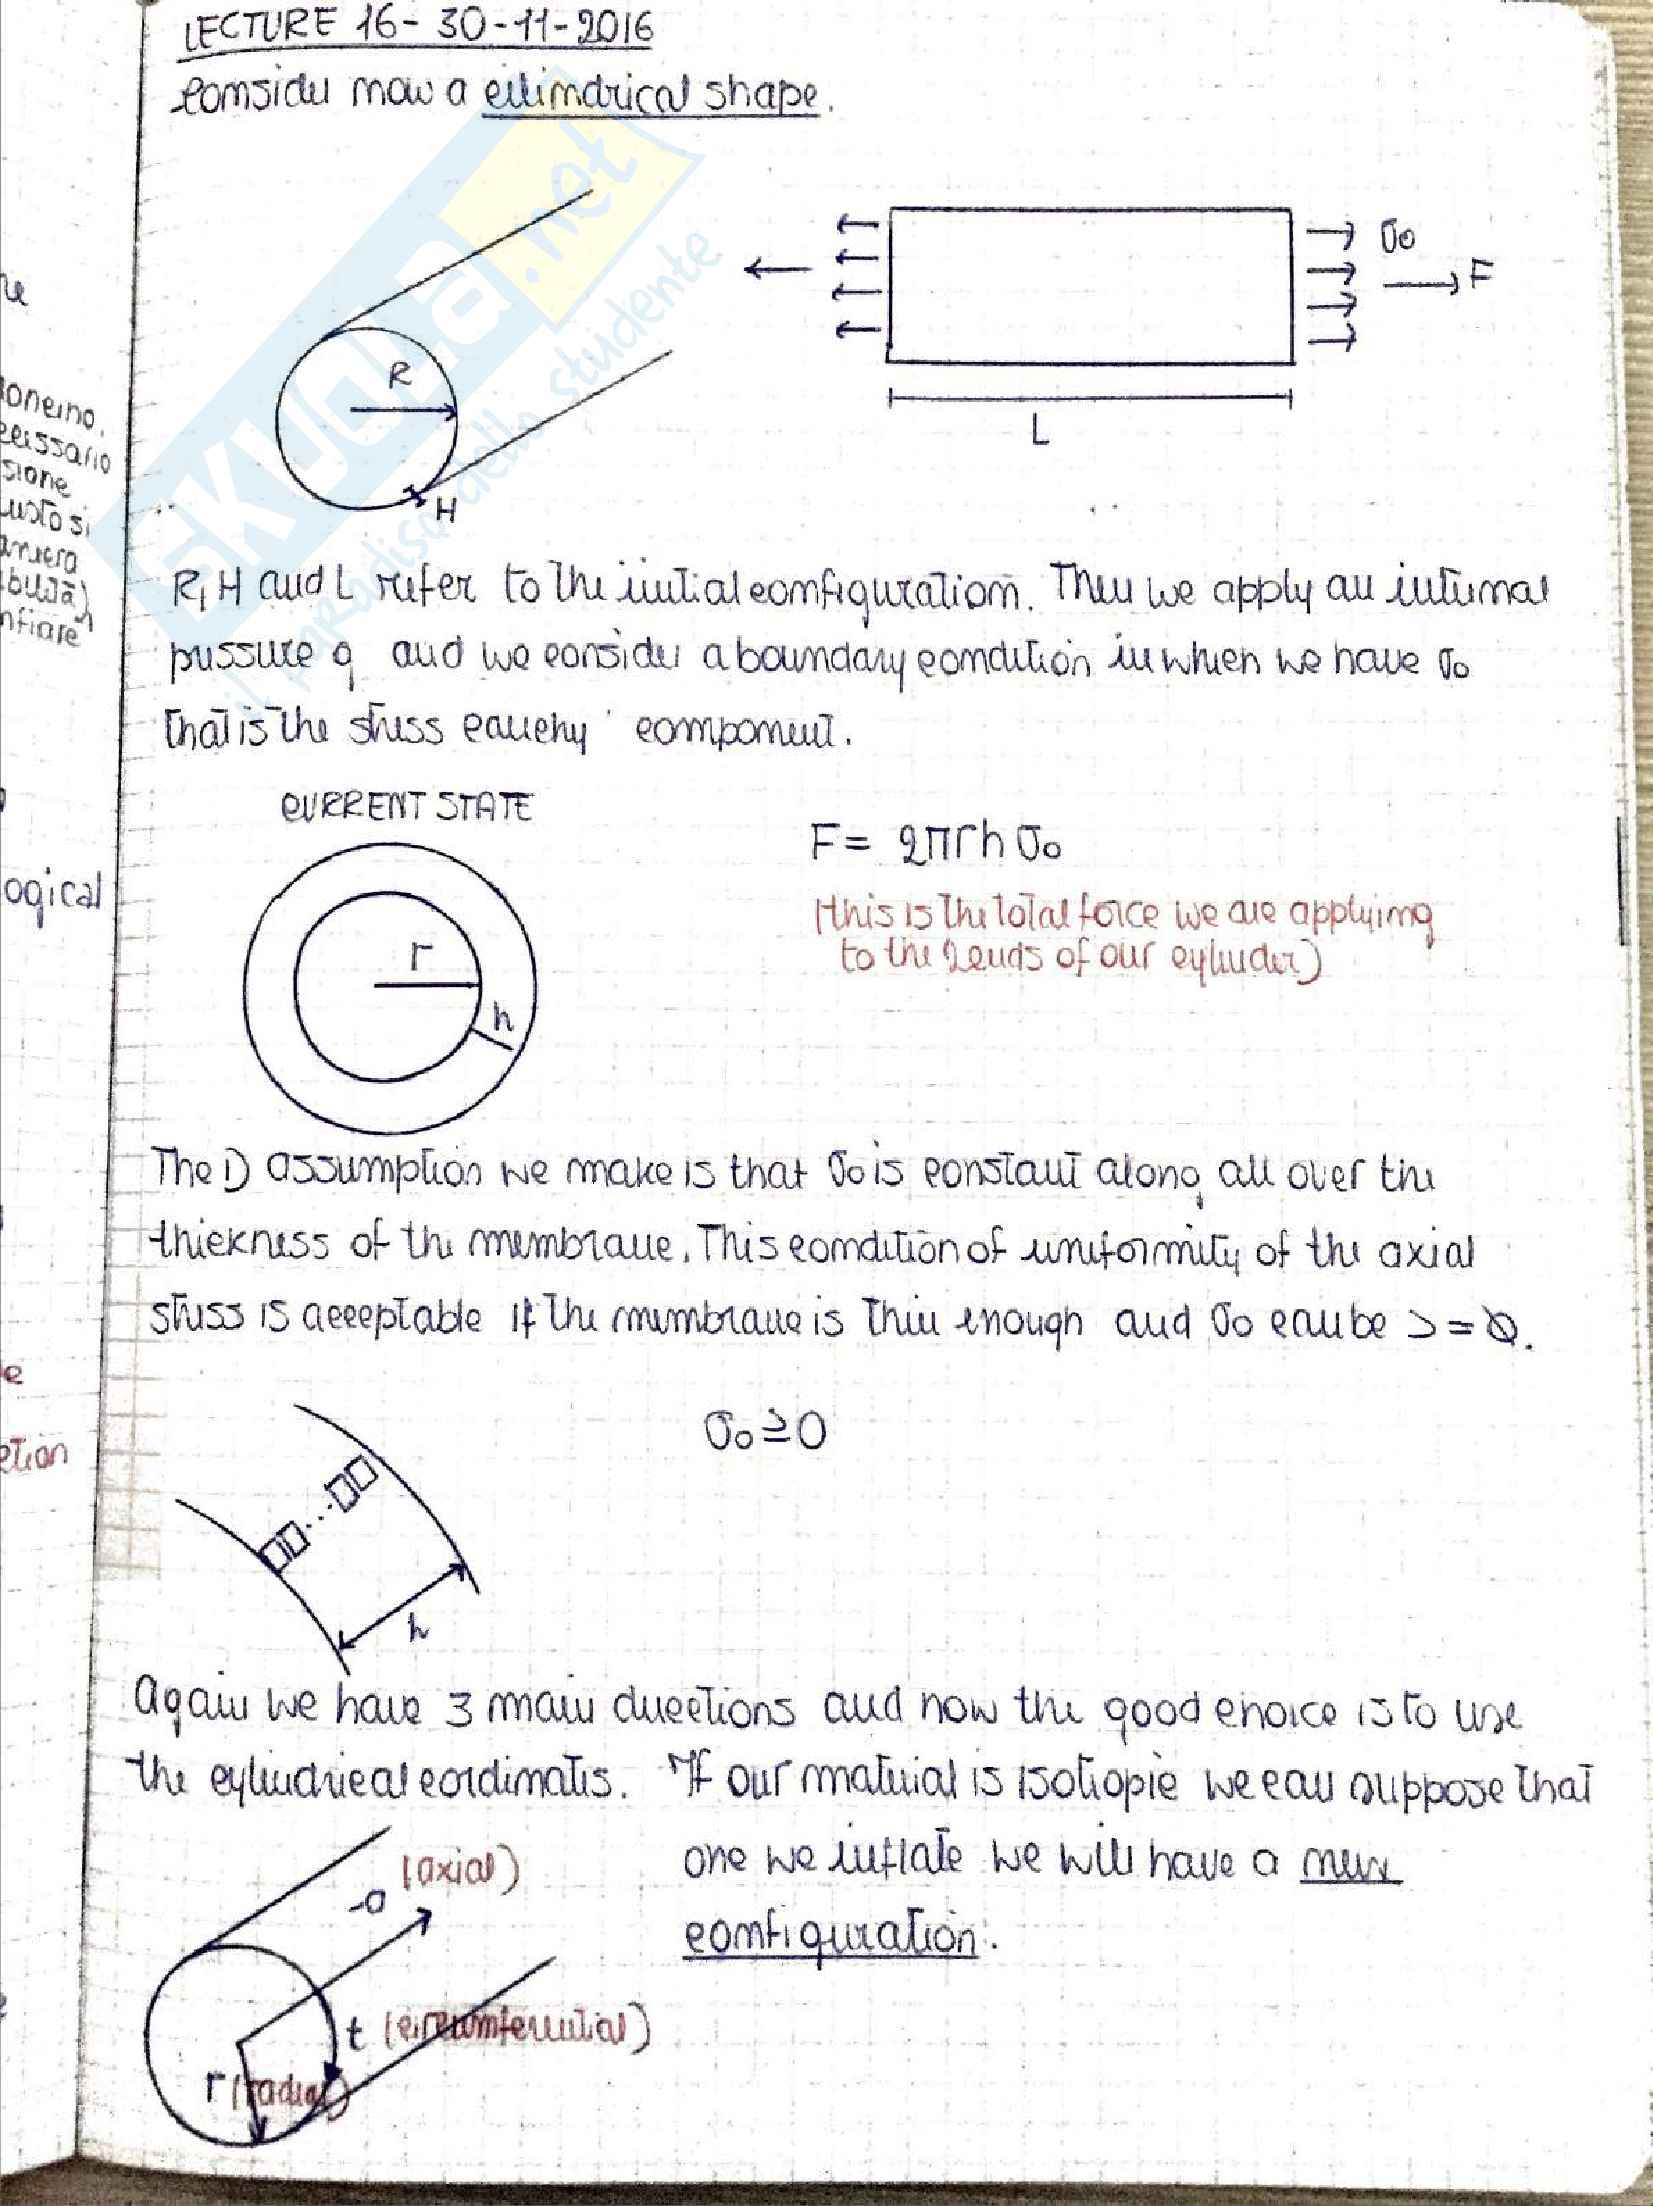 LECTURE 16- 30-11-2016
Consider now a cilindrical shape.
R
H
σ0
F
L
R, H and L refer to the initial configuration. Then we apply an internal
pressure q and we consider a boundary condition in which we have σ0
that is the stress cauchy component.
CURRENT STATE
r
h
F = 2πrh σ0
(this is the total force we are applying
to the 2 ends of our cylinder)
The 1) assumption we make is that σ0 is constant along all over the
thickness of the membrane. This condition of uniformity of the axial
stress is acceptable if the membrane is thin enough and σ0 can be > = 0.
σ0 ≥ 0
h
Again we have 3 main directions and now the good choice is to use
the cylindrical cordinates. If our material is isotropic we can suppose that
one we inflate we will have a new
configuration.
a (axial)
t (circumferential)
r (radial)
re
ecessario
sione
usto si
aniera
nfiare
ogical
e
ction
Skuola.net
il paradiso dello studente